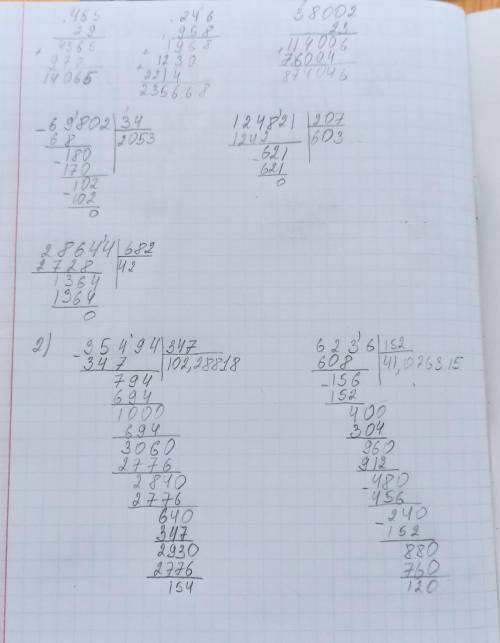 .485 .246 38002
29 968 23
4365 1968 114006
970 1230 76004
14065 2214 874046
236668
-69802 34 124821 207
68 2053 1242 603
-180 -621
170 621
102 0
-102
0
28644 682
2728 42
1364
1364
0
2) -35494 347 6236 152
347 102,28818 608 41,026315
794 -156
694 152
1000 400
694 304
3060 960
2776 912
2840 -480
2776 456
640 -240
347 152
2930 880
2776 760
154 120